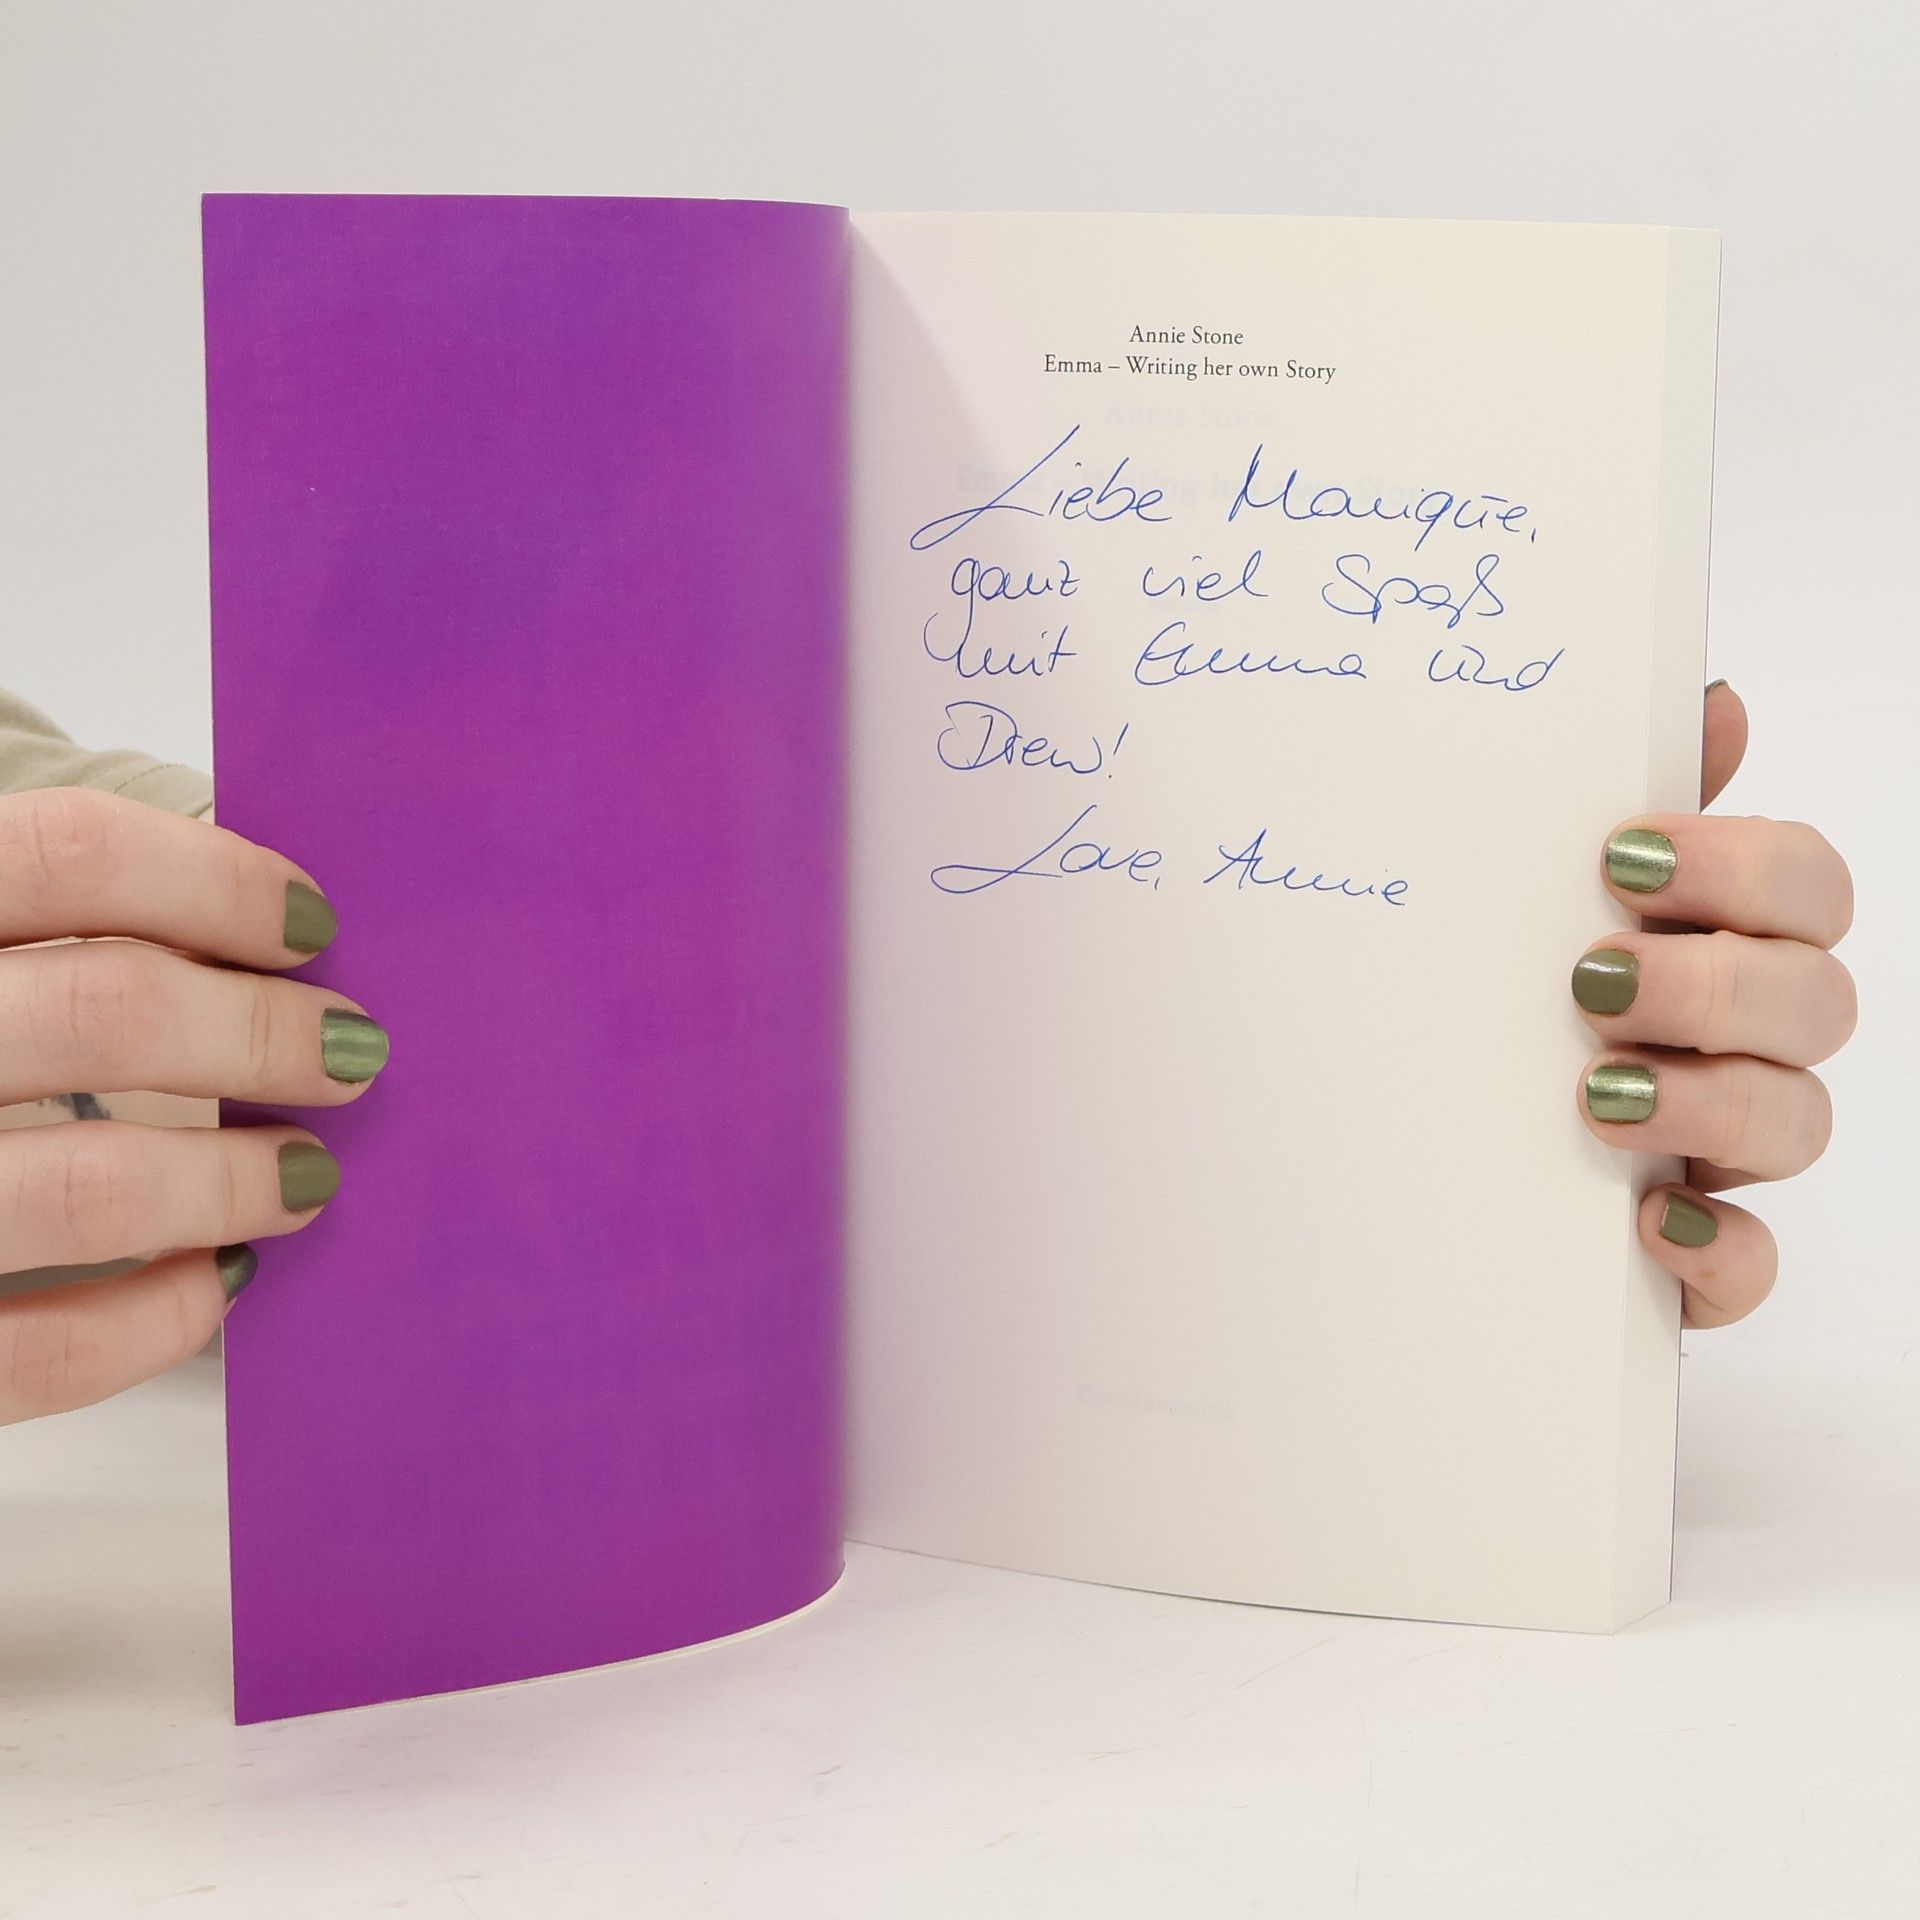 Annie Stone
Emma – Writing her own Story
Liebe Manique,
ganz viel Spaß
mit Emma und
Drew!
Love, Annie